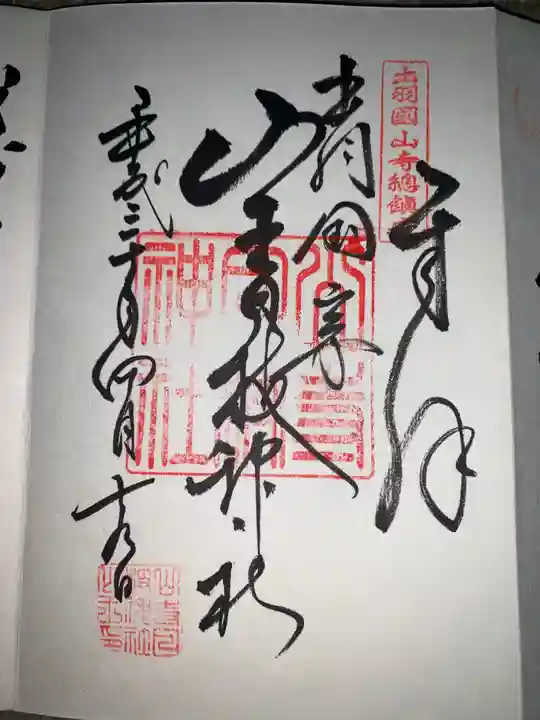 出羽國山寺總鎮
奉拝
清國家
山王日枝神社
平成三十年四月十九日
山寺日枝神社